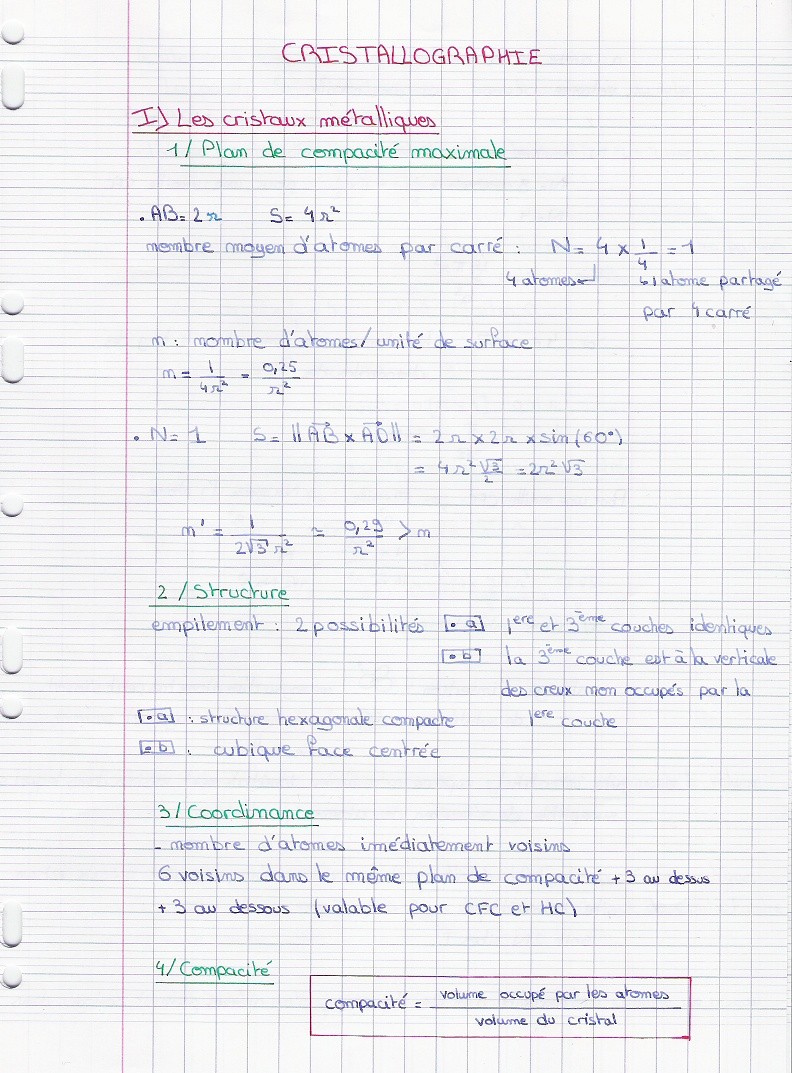 CRISTALLOGRAPHIE
I) Les cristaux métalliques
1/ Plan de compacité maximale
. AB = 2r S = 4r²
nombre moyen d'atomes par carré : N = 4 × 1/4 = 1
4 atomes ↵ ↳ 1 atome partagé
par 4 carré
n : nombre d'atomes / unité de surface
n = 1/4r² = 0,25/r²
. N = 1 S = ||AB⃗ × AC⃗|| = 2r × 2r × sin(60°)
= 4r² √3/2 = 2r²√3
n' = 1/2√3 r² ≃ 0,29/r² > n
2 / Structure
empilement : 2 possibilités [. a] 1ere et 3ème couches identiques
[. b] la 3ème couche est à la verticale
des creux non occupés par la
[. a] : structure hexagonale compacte 1ere couche
[. b] : cubique face centrée
3 / Coordinance
- nombre d'atomes imédiatement voisins
6 voisins dans le même plan de compacité + 3 au dessus
+ 3 au dessous (valable pour CFC et HC)
4/ Compacité
compacité = volume occupé par les atomes / volume du cristal